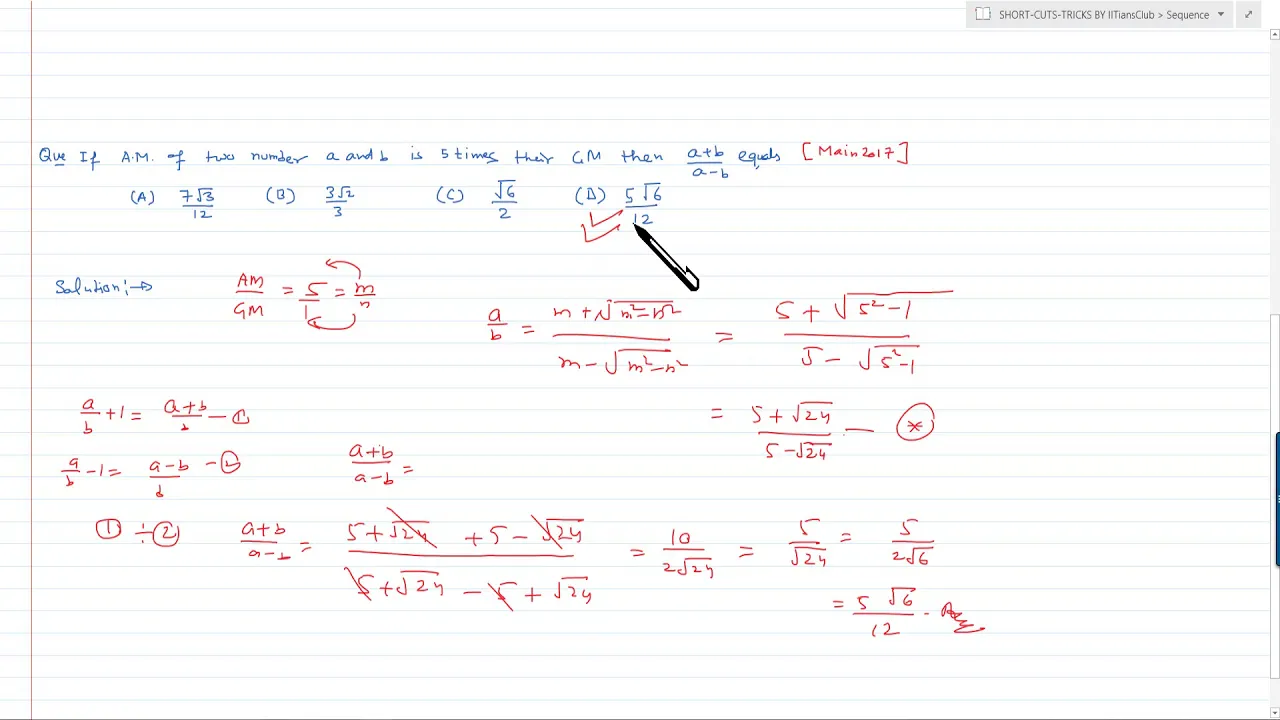 SHORT-CUTS-TRICKS BY IITiansClub > Sequence
Que If A.M. of two number a and b is 5 times their GM then (a+b)/(a-b) equals, [Main 2017]
(A) 7√3/12 (B) 3√2/3 (C) √6/2 (D) 5√6/12
Solution :→ AM/GM = 5/1 = m/n
a/b = (m + √(m²-n²))/(m - √(m²-n²)) = (5 + √(5²-1))/(5 - √(5²-1))
= (5 + √24)/(5 - √24) — (*)
a/b + 1 = (a+b)/b — ①
a/b - 1 = (a-b)/b — ②
(a+b)/(a-b) =
① ÷ ② (a+b)/(a-b) = (5 + √24 + 5 - √24)/(5 + √24 - 5 + √24) = 10/(2√24) = 5/√24 = 5/(2√6)
= 5√6/12 .